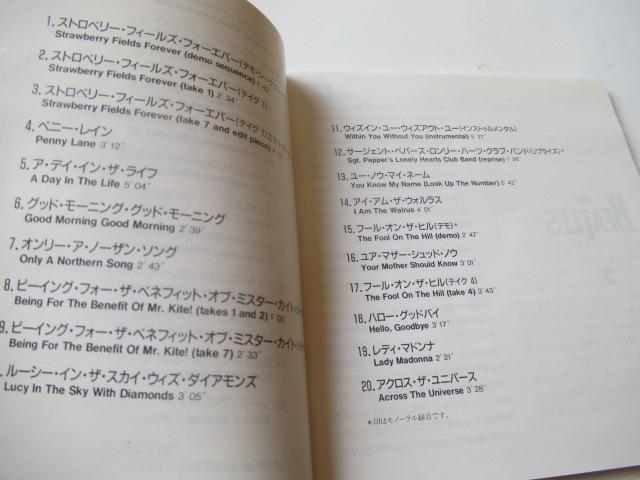 1. ストロベリー・フィールズ・フォーエバー(デモ・シークエンス)
Strawberry Fields Forever (demo sequence) 1´42˝
2. ストロベリー・フィールズ・フォーエバー(テイク 1)
Strawberry Fields Forever (take 1) 2´34˝
3. ストロベリー・フィールズ・フォーエバー(テイク 7
Strawberry Fields Forever (take 7 and edit piece)
4. ペニー・レイン
Penny Lane 3´12˝
5. ア・デイ・イン・ザ・ライフ
A Day In The Life 5´04˝
6. グッド・モーニング・グッド・モーニング
Good Morning Good Morning 2´39˝
7. オンリー・ア・ノーザン・ソング
Only A Northern Song 2´43˝
8. ビーイング・フォー・ザ・ベネフィット・オブ・ミスター・カイト(テー
Being For The Benefit Of Mr. Kite! (takes 1 and 2) 1´05˝
9. ビーイング・フォー・ザ・ベネフィット・オブ・ミスター・カイト(テー
Being For The Benefit Of Mr. Kite! (take 7) 2´33˝
. ルーシー・イン・ザ・スカイ・ウィズ・ダイアモンズ
Lucy In The Sky With Diamonds 3´05˝
11. ウィズイン・ユー・ウィズアウト・ユー(インストゥルメンタル)
Within You Without You (instrumental) 5´27˝
12. サージェント・ペパーズ・ロンリー・ハーツ・クラブ・バンド(リプライズ)*
Sgt. Pepper's Lonely Hearts Club Band (reprise) 1´26˝
13. ユー・ノウ・マイ・ネーム
You Know My Name (Look Up The Number) 5´42˝
14. アイ・アム・ザ・ウォルラス
I Am The Walrus 4´01˝
15. フール・オン・ザ・ヒル(デモ)*
The Fool On The Hill (demo) 2´47˝
16. ユア・マザー・シュッド・ノウ
Your Mother Should Know 3´01˝
17. フール・オン・ザ・ヒル(テイク 4)
The Fool On The Hill (take 4) 3´43˝
18. ハロー・グッドバイ
Hello, Goodbye 3´17˝
19. レディ・マドンナ
Lady Madonna 2´21˝
20. アクロス・ザ・ユニバース
Across The Universe 3´28˝
*印はモノーラル録音です。
BEATLES
2